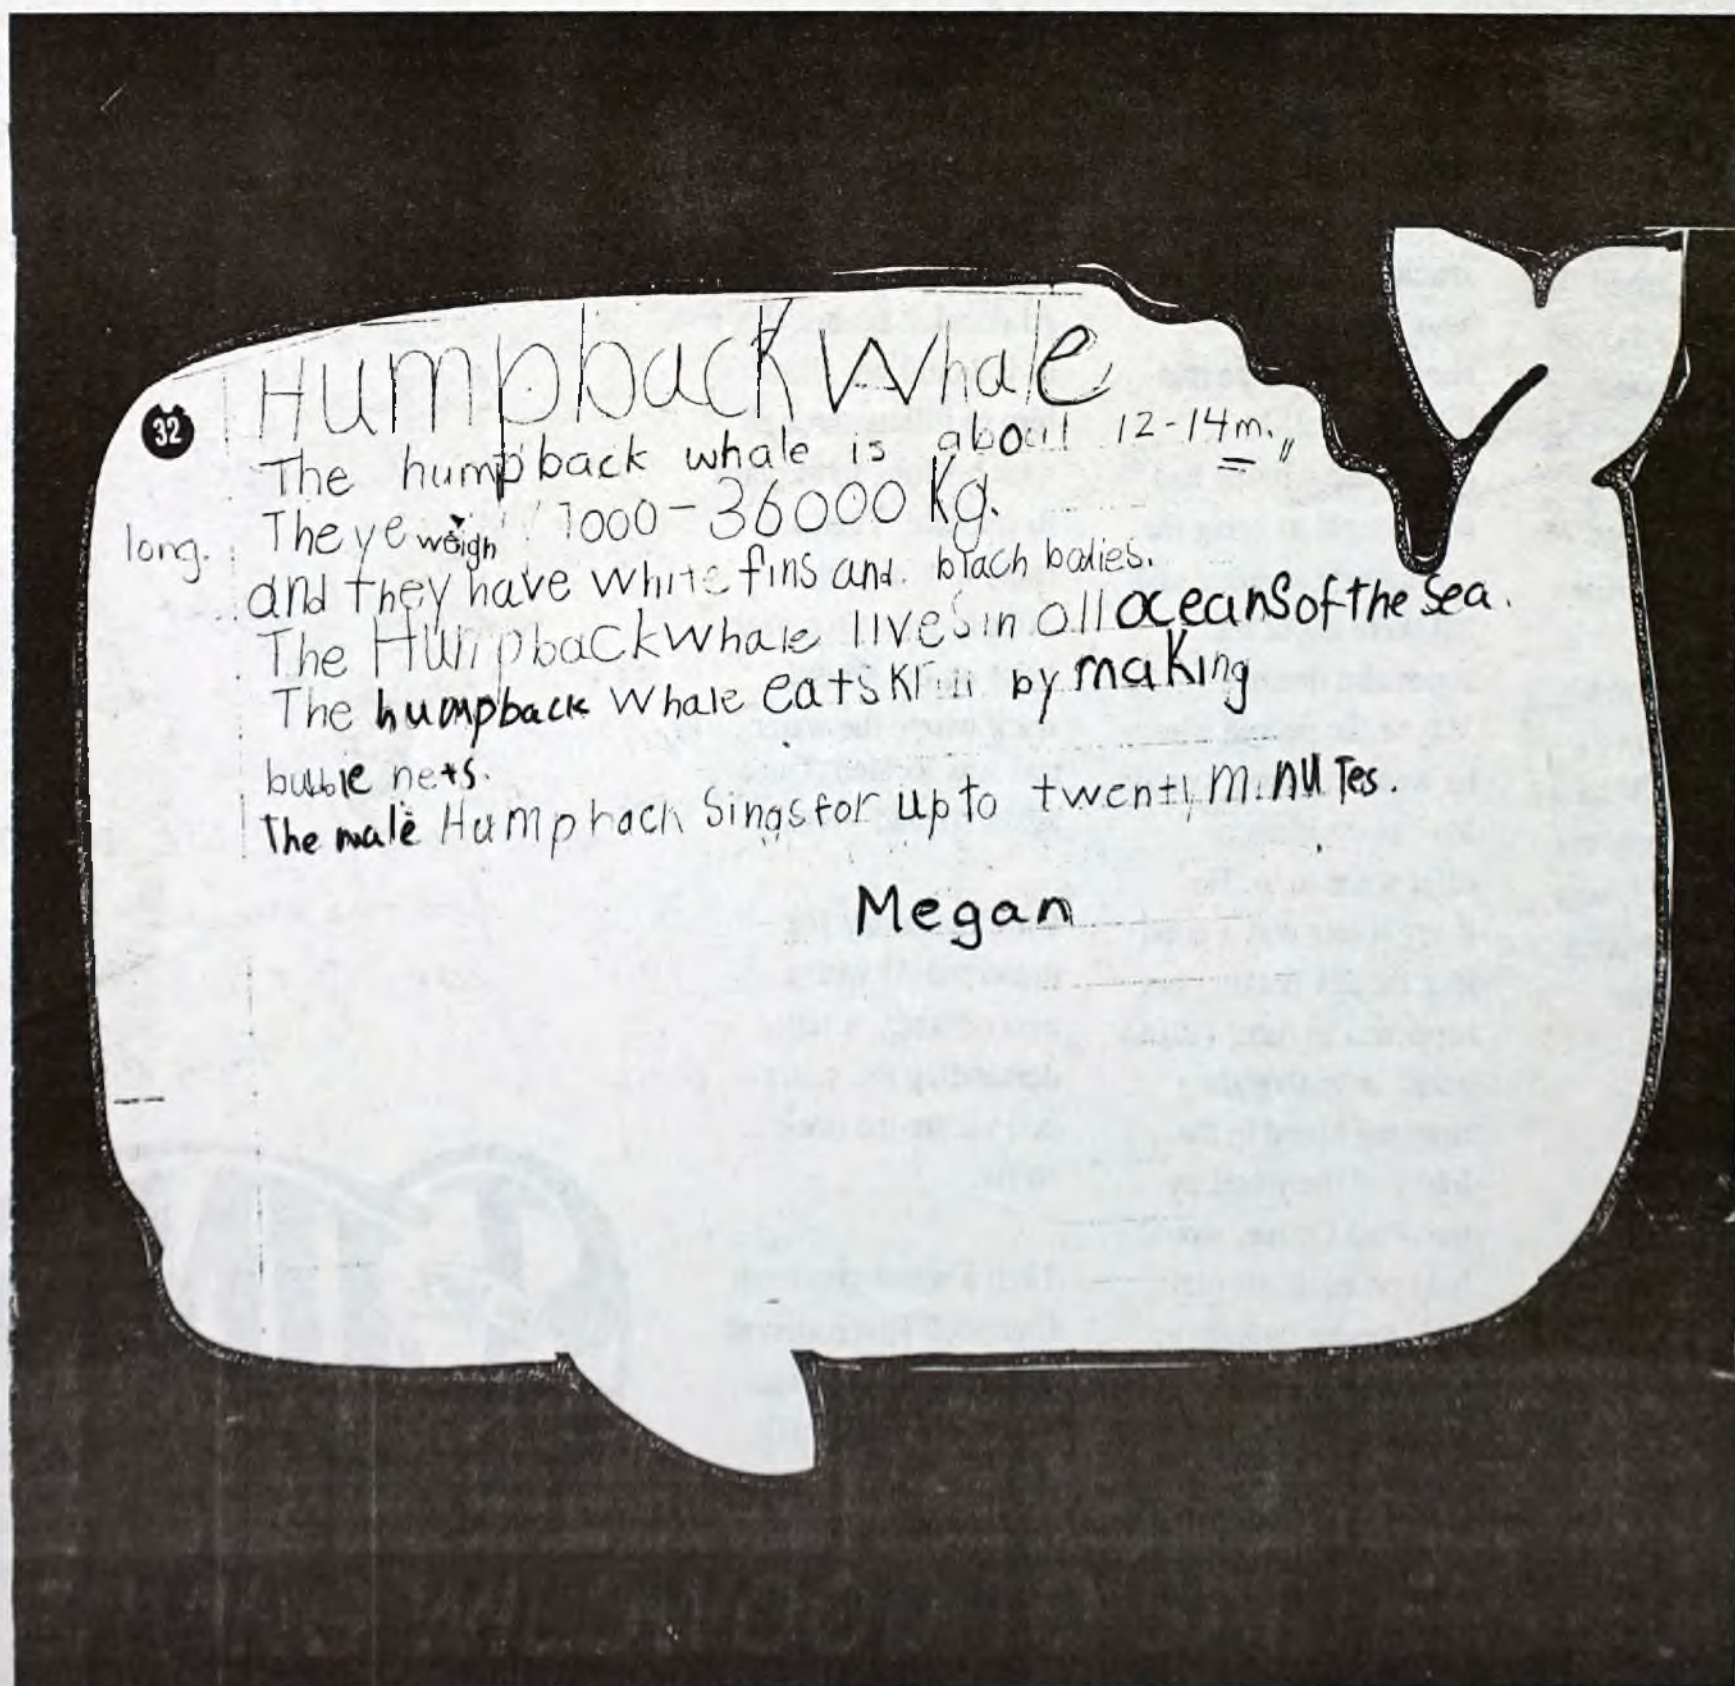 Humpback Whale
32
The humpback whale is about 12-14m.
long. Theye weigh 7000-36000 Kg.
and they have white fins and black bodies.
The Humpback whale lives in all oceans of the Sea.
The humpback whale eats Krill by making
bubble nets.
The male Humpback Sings for up to twenty minutes.
Megan